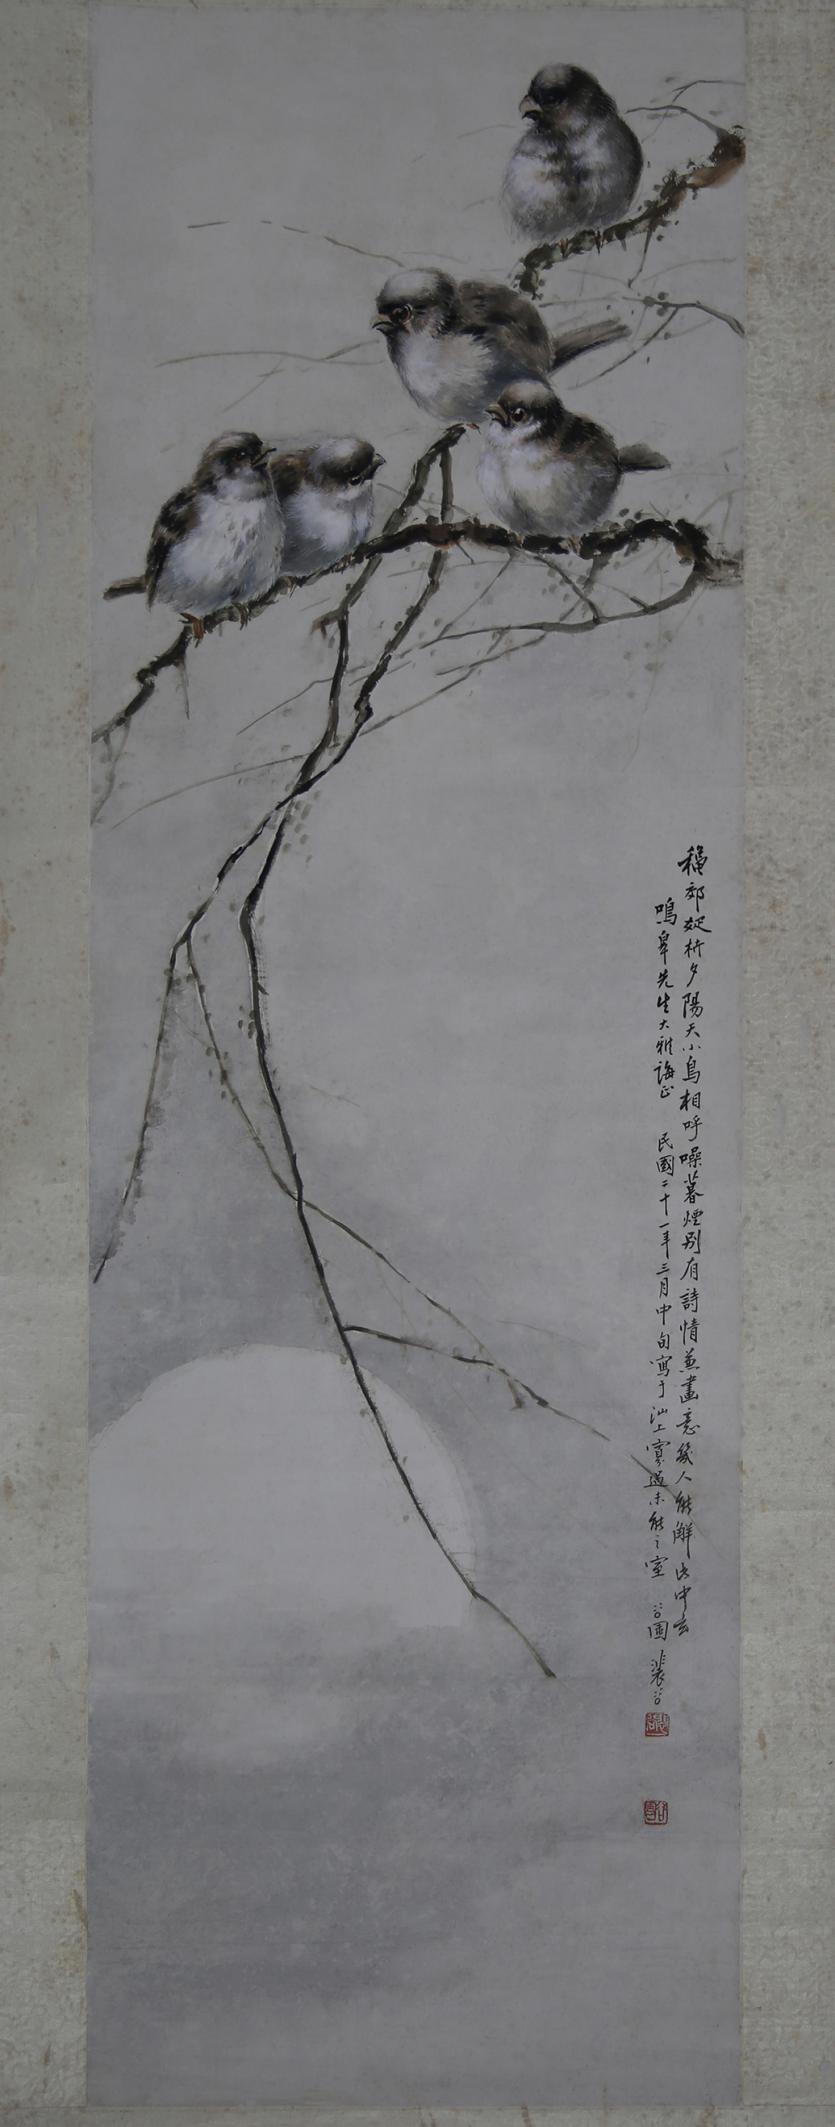 穐郊娗析夕陽天小鳥相呼噪暮煙別有詩情兼畫意幾人能解此中玄
鳴皋先生大雅誨正 民國二十一年三月中旬寫于汕上寡過未能之室 谷園 裴谷